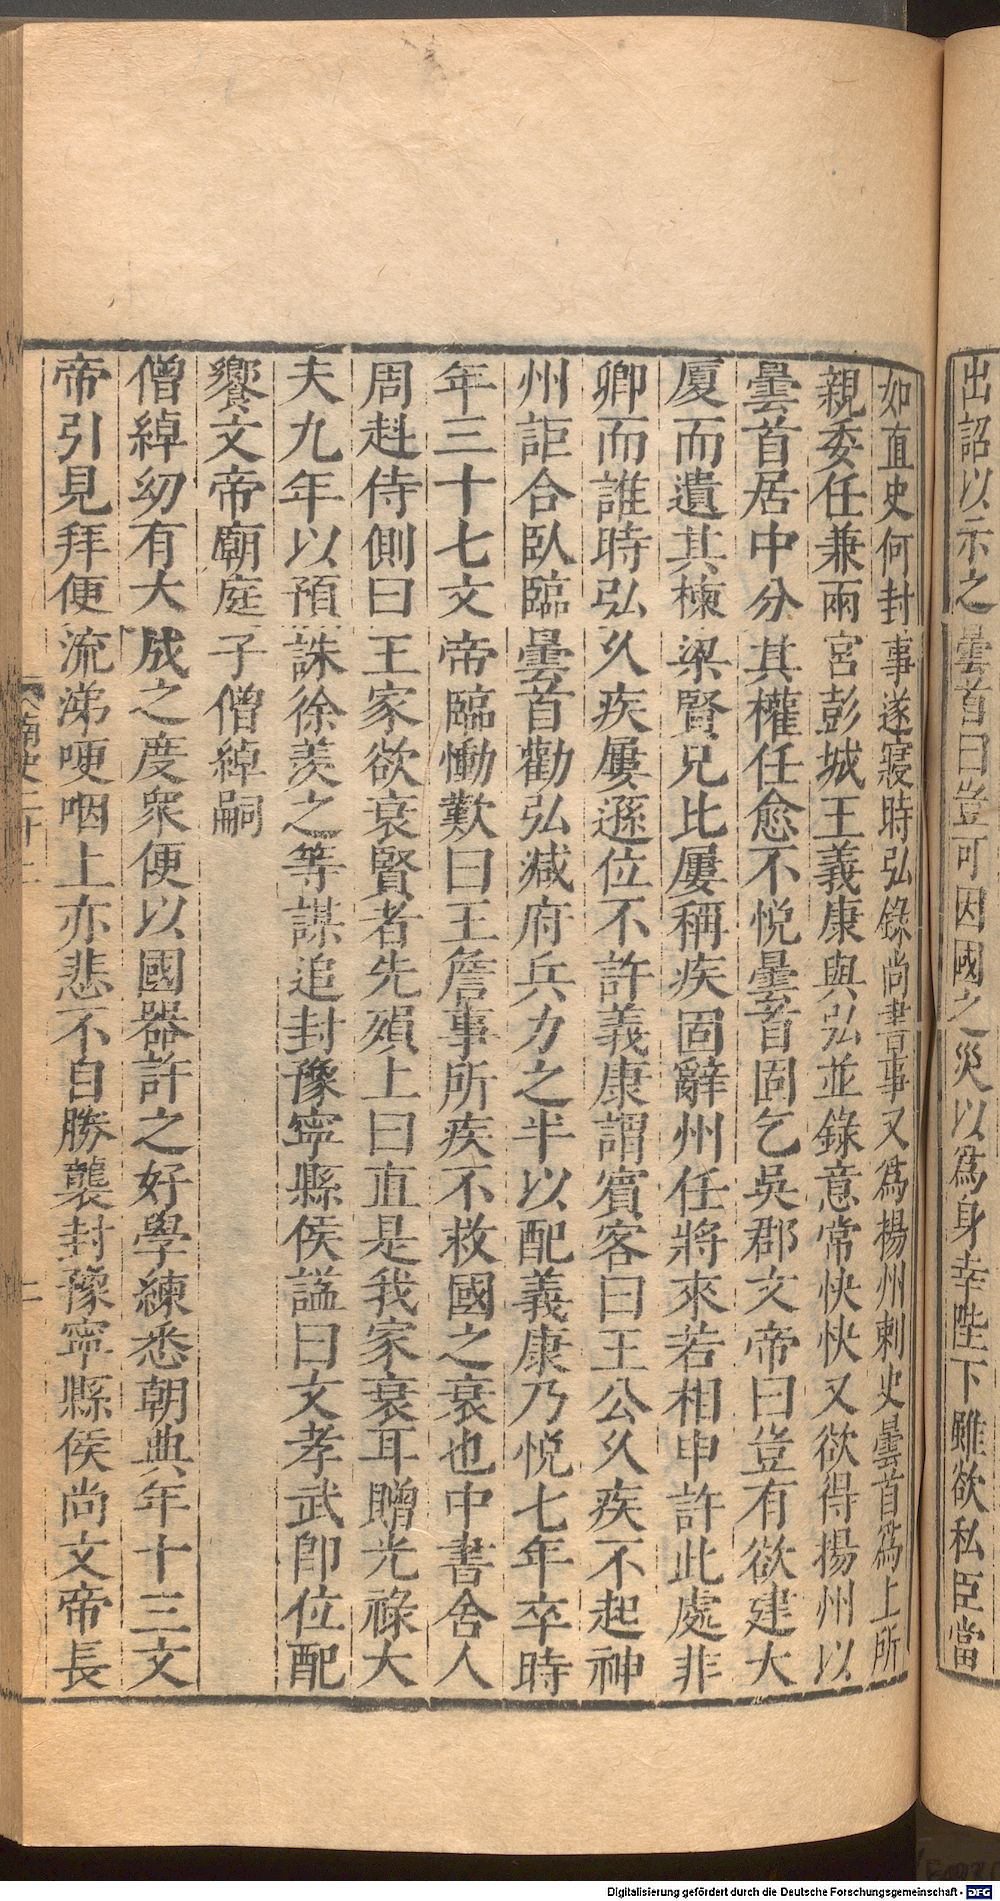 出詔以示之曇首曰豈可因國之災以爲身幸陛下雖欲私臣當
如直史何封事遂寢時弘錄尚書事又爲揚州刺史曇首爲上所
親委任兼兩宮彭城王義康與弘並錄意常怏怏又欲得揚州以
曇首居中分其權任愈不悅曇首固乞吳郡文帝曰豈有欲建大
厦而遺其棟梁賢兄比屢稱疾固辭州任將來若相申許此處非
卿而誰時弘久疾屢遜位不許義康謂賓客曰王公久疾不起神
州詎合臥臨曇首勸弘減府兵力之半以配義康乃悅七年卒時
年三十七文帝臨慟歎曰王詹事所疾不救國之衰也中書舍人
周赳侍側曰王家欲衰賢者先殞上曰直是我家衰耳贈光祿大
夫九年以預誅徐羨之等謀追封豫寧縣侯謚曰文孝武即位配
饗文帝廟庭子僧綽嗣
僧綽幼有大成之度衆便以國器許之好學練悉朝典年十三文
帝引見拜便流涕哽咽上亦悲不自勝襲封豫寧縣侯尚文帝長
南史二十二
二
Digitalisierung gefördert durch die Deutsche Forschungsgemeinschaft - DFG